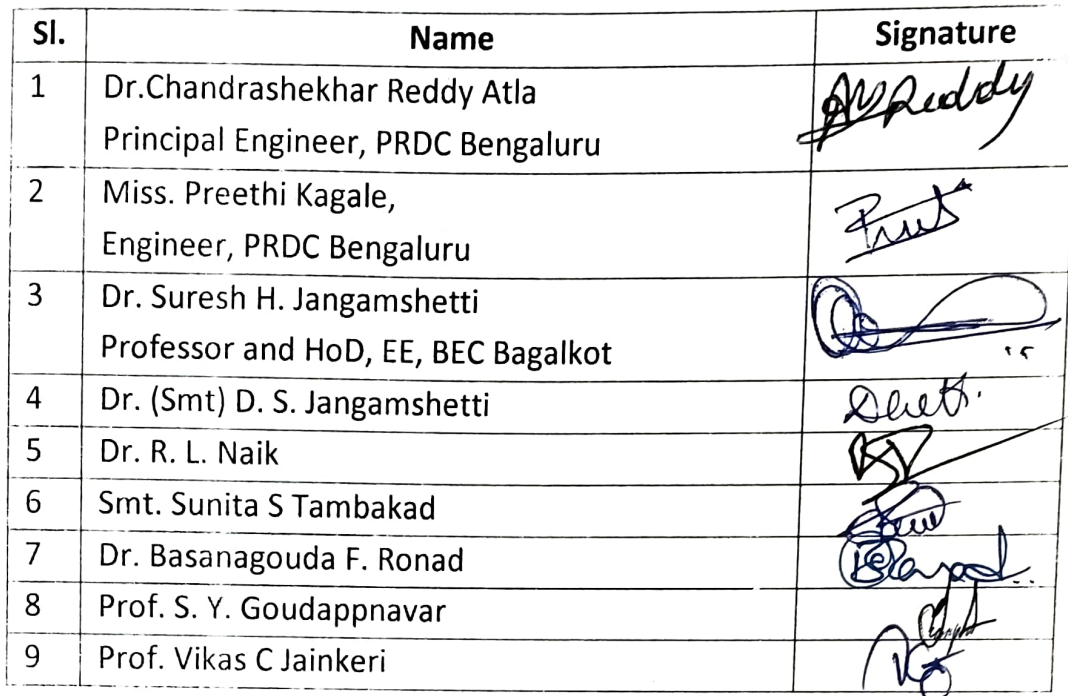 Sl. Name Signature
1 Dr.Chandrashekhar Reddy Atla
Principal Engineer, PRDC Bengaluru
Reddy
2 Miss. Preethi Kagale,
Engineer, PRDC Bengaluru
3 Dr. Suresh H. Jangamshetti
Professor and HoD, EE, BEC Bagalkot
4 Dr. (Smt) D. S. Jangamshetti
5 Dr. R. L. Naik
6 Smt. Sunita S Tambakad
7 Dr. Basanagouda F. Ronad
8 Prof. S. Y. Goudappnavar
9 Prof. Vikas C Jainkeri